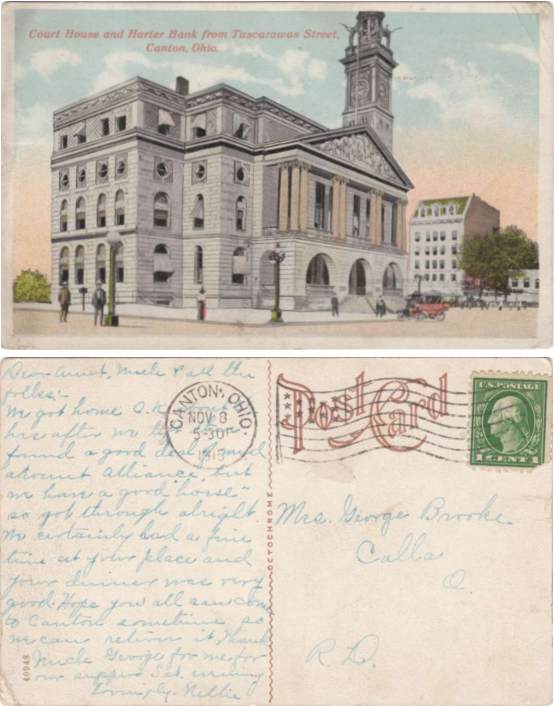 Court House and Harter Bank from Tuscarawas Street,
Canton, Ohio.
Dear Aunt, Uncle & all the
folks:-
We got home O.K.
hrs after we
found a good deal of mud
around Alliance, but
we have a good "horse"
so got through alright.
We certainly had a fine
time at your place and
your dinner was very
good. Hope you all can come
to Canton sometime so
we can return it. Thank
Uncle George for me for
our supper Sat. evening
Lovingly, Nellie
40948
OCTOCHROME
CANTON, OHIO.
NOV 8
5-30
1913
Post Card
U.S. POSTAGE
1 CENT 1
Mrs. George Brooke
Calla
O.
R.D.